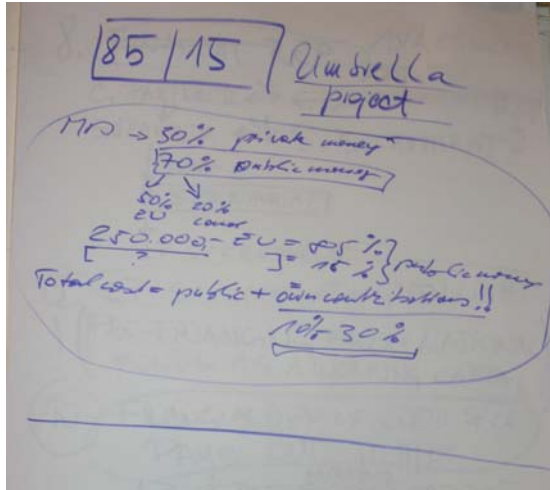 85 | 15
Umbrella
project
→ 30% private money"
70% public money
50% 20%
EU
250.000,- EU = 85%
[ ? ] = 15% } public money
Total cost = public + own contributions!!
10%-30%